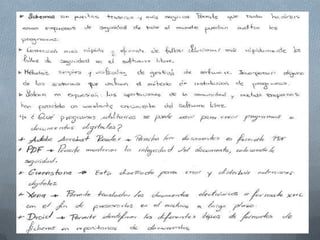 * Sistemas sin puertas traseras y más seguros. Permite que tanto hackers
como empresas de seguridad de todo el mundo puedan auditar los
programas.
* Corrección más rápida y eficiente de fallos. Funcional más rápidamente los
fallos de seguridad en el software libre.
* Métodos simples y unificados de gestión de software. Incorporan alguno
de los sistemas que unifican el método de instalación de programas.
* Sistema en expansión. Las aportaciones de la comunidad y muchas empresas
han permitido un constante crecimiento del software libre.
¿Qué programas adicionales se puede usar para crear programas o
documentos digitales?
* Adobe Acrobat Reader - Permite leer documentos en formato PDF
* PDF → Permite mantener la integridad del documento,
seguridad.
* Greenstone → Está diseñado para crear y distribuir colecciones
digitales.
* Xena → Permite transformar los documentos electrónicos a formato XML
con el fin de preservarlos en el archivo a largo plazo.
* Droid → Permite identificar los diferentes tipos de formatos de
ficheros en repositorios de documentos.